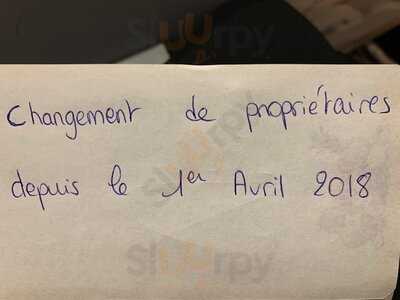 Changement de propriétaires
depuis le 1er Avril 2018